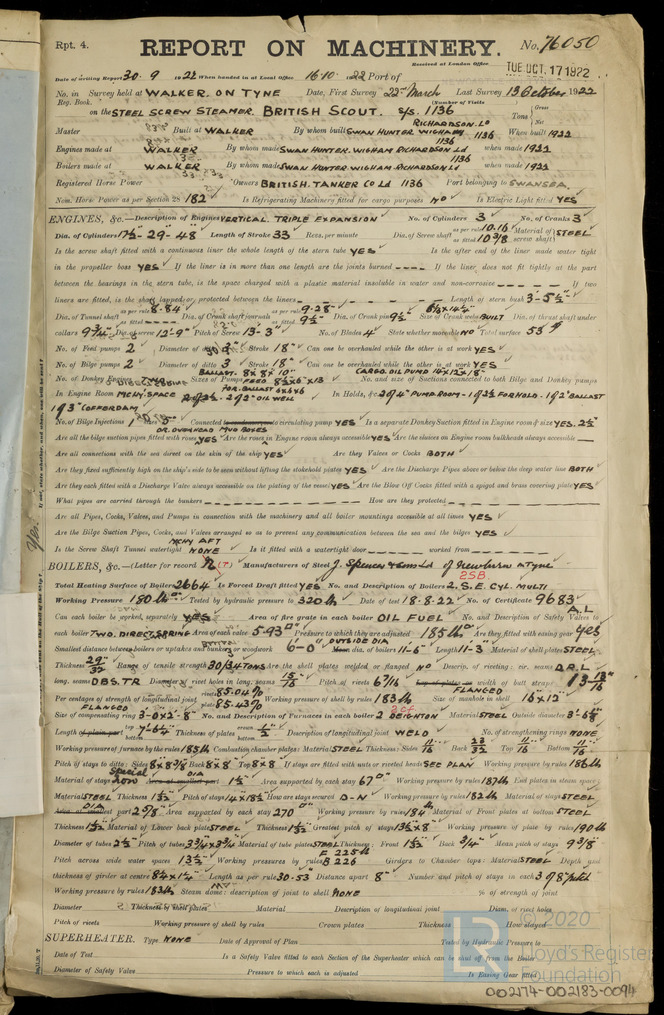 Rpt. 4.
REPORT ON MACHINERY.
No. 76050
Received at London Office TUE OCT. 17 1922
Date of writing Report 30. 9 1922 When handed in at Local Office 16.10.1922 Port of
No. in Survey held at WALKER. ON TYNE Date, First Survey 22nd March Last Survey 13 October 1922
Reg. Book. (Number of Visits
on the STEEL SCREW STEAMER. BRITISH SCOUT. S/S. 1136 Tons Gross Net
Master Built at WALKER By whom built SWAN HUNTER WIGHAM RICHARDSON Ld 1136 When built 1922
Engines made at WALKER By whom made SWAN HUNTER. WIGHAM RICHARDSON Ld 1136 when made 1922
Boilers made at WALKER By whom made SWAN HUNTER WIGHAM. RICHARDSON Ld 1136 when made 1922
Registered Horse Power Owners BRITISH. TANKER Co Ld 1136 Port belonging to SWANSEA.
Nom. Horse Power as per Section 28 182 Is Refrigerating Machinery fitted for cargo purposes NO Is Electric Light fitted YES
ENGINES, &c.—Description of Engines VERTICAL. TRIPLE EXPANSION No. of Cylinders 3 No. of Cranks 3
Dia. of Cylinders 17½- 29- 48" Length of Stroke 33 Revs. per minute Dia. of Screw shaft as per rule 10.16 as fitted 10 3/8 Material of screw shaft STEEL
Is the screw shaft fitted with a continuous liner the whole length of the stern tube YES Is the after end of the liner made water tight
in the propeller boss YES If the liner is in more than one length are the joints burned If the liner does not fit tightly at the part
between the bearings in the stern tube, is the space charged with a plastic material insoluble in water and non-corrosive If two
liners are fitted, is the shaft lapped or protected between the liners Length of stern bush 3'-5½"
Dia. of Tunnel shaft as per rule 8.84 as fitted Dia. of Crank shaft journals as per rule 9.28 as fitted 9½ Dia. of Crank pin 9½ Size of Crank webs BUILT Dia. of thrust shaft under
collars 9¾" Dia. of screw 12'-9" Pitch of Screw 13'-3" No. of Blades 4 State whether moveable NO Total surface 53
No. of Feed pumps 2 Diameter of ditto Stroke 18" Can one be overhauled while the other is at work YES
No. of Bilge pumps 2 Diameter of ditto 3" Stroke 18" Can one be overhauled while the other is at work YES
No. of Donkey Engines Sizes of Pumps BALLAST. 8x8x10" FEED CARGO. OIL PUMP 14x12x18" No. and size of Suctions connected to both Bilge and Donkey pumps
In Engine Room MCHY. SPACE 2@2½ - 2@2" OIL WELL FOR. BALLAST 6x6x6 In Holds, &c. 2@4" PUMP ROOM - 1@2½ FOR HOLD - 1@2" BALLAST
1@3" COFFERDAM
No. of Bilge Injections 1 sizes 5" Connected to circulating pump YES Is a separate Donkey Suction fitted in Engine room & size YES. 2½"
Are all the bilge suction pipes fitted with roses YES OR. OVERHEAD MUD BOXES Are the roses in Engine room always accessible YES Are the sluices on Engine room bulkheads always accessible
Are all connections with the sea direct on the skin of the ship YES Are they Valves or Cocks BOTH
Are they fixed sufficiently high on the ship's side to be seen without lifting the stokehold plates YES Are the Discharge Pipes above or below the deep water line BOTH
Are they each fitted with a Discharge Valve always accessible on the plating of the vessel YES Are the Blow Off Cocks fitted with a spigot and brass covering plate YES
What pipes are carried through the bunkers How are they protected
Are all Pipes, Cocks, Valves, and Pumps in connection with the machinery and all boiler mountings accessible at all times YES
Are the Bilge Suction Pipes, Cocks, and Valves arranged so as to prevent any communication between the sea and the bilges YES
Is the Screw Shaft Tunnel watertight MCHY AFT NONE Is it fitted with a watertight door worked from
BOILERS, &c.—(Letter for record (T)) Manufacturers of Steel J. Spencer & Sons Ld of Newburn on Tyne
2SB.
Total Heating Surface of Boilers 2664 Is Forced Draft fitted YES No. and Description of Boilers 2. S. E. CYL. MULTI
Working Pressure 180 lb Tested by hydraulic pressure to 320 lb Date of test 18.8.22 No. of Certificate 9683
Can each boiler be worked separately YES Area of fire grate in each boiler OIL FUEL No. and Description of Safety Valves to
each boiler TWO. DIRECT. SPRING Area of each valve 5.93 Pressure to which they are adjusted 185 lb Are they fitted with easing gear yes
Smallest distance between boilers or uptakes and bunkers or woodwork 6"-0" OUTSIDE DIA dia. of boilers 11-6" Length 11-3" Material of shell plates STEEL
Thickness 29/32 Range of tensile strength 30/34 TONS Are the shell plates welded or flanged NO Descrip. of riveting: cir. seams D.R.L
long. seams DBS.TR Diameter of rivet holes in long. seams 15/16 Pitch of rivets 6 7/16 width of butt straps 13-13/16
Per centages of strength of longitudinal joint rivets 85.04% plate 85.43% Working pressure of shell by rules 183 lb Size of manhole in shell FLANGED 16x12"
Size of compensating ring FLANGED 3-0x2'-8" No. and Description of Furnaces in each boiler 2 DEIGHTON Material STEEL Outside diameter 3'-6
Length of plain part 7'-6 Thickness of plates Description of longitudinal joint WELD No. of strengthening rings NONE
Working pressure of furnace by the rules 185 lb Combustion chamber plates: Material STEEL Thickness: Sides 11/16 Back 23/32 Top 11/16 Bottom 11/16
Pitch of stays to ditto: Sides 8x8 Back 8x8 Top 8x8 If stays are fitted with nuts or riveted heads SEE PLAN Working pressure by rules 186 lb
Material of stays Special IRON DIA 1½" Area supported by each stay 67 Working pressure by rules 187 lb End plates in steam space:
Material STEEL Thickness 1 Pitch of stays 14x18½ How are stays secured D-N Working pressure by rules 182 lb Material of stays STEEL
DIA 2 5/8 Area supported by each stay 270 Working pressure by rules 184 lb Material of Front plates at bottom STEEL
Thickness Material of Lower back plate STEEL Thickness Greatest pitch of stays 13½x8" Working pressure of plate by rules 190 lb
Diameter of tubes 2½ Pitch of tubes 3¾x3¾ Material of tube plates STEEL Thickness: Front Back ¾" Mean pitch of stays 9 3/8
Pitch across wide water spaces 13½ Working pressures by rules F 225 lb B 226 Girders to Chamber tops: Material STEEL Depth and
thickness of girder at centre 8¼x1¼ Length as per rule 30.53 Distance apart 8" Number and pitch of stays in each 3 @ 8" pitch
Working pressure by rules 183 lb Steam dome: description of joint to shell NONE % of strength of joint
Diameter Thickness of shell plates Material Description of longitudinal joint Diam. of rivet holes
Pitch of rivets Working pressure of shell by rules Crown plates Thickness How stayed
SUPERHEATER. Type NONE Date of Approval of Plan Tested by Hydraulic Pressure to
Date of Test Is a Safety Valve fitted to each Section of the Superheater which can be shut off from the Boiler
Diameter of Safety Valve Pressure to which each is adjusted Is Easing Gear fitted
© 2020
Lloyd's Register
Foundation
002174-002183-0094